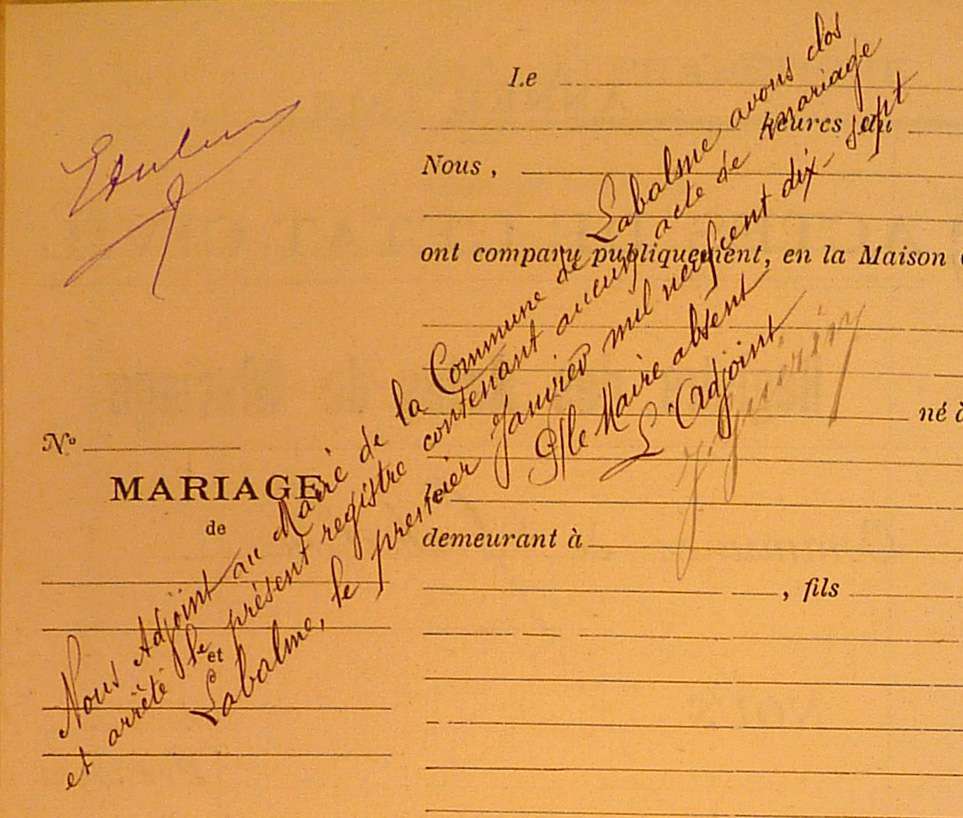 Le
heures du
Nous,
ont comparu publiquement, en la Maison
né à
No
MARIAGE
de
demeurant à
, fils
et
Nous Adjoint au Maire de la Commune de Labalme avons clos
et arrêté le présent registre contenant aucun acte de mariage
Labalme, le premier Janvier mil neuf cent dix-sept
P/le Maire absent
L'Adjoint